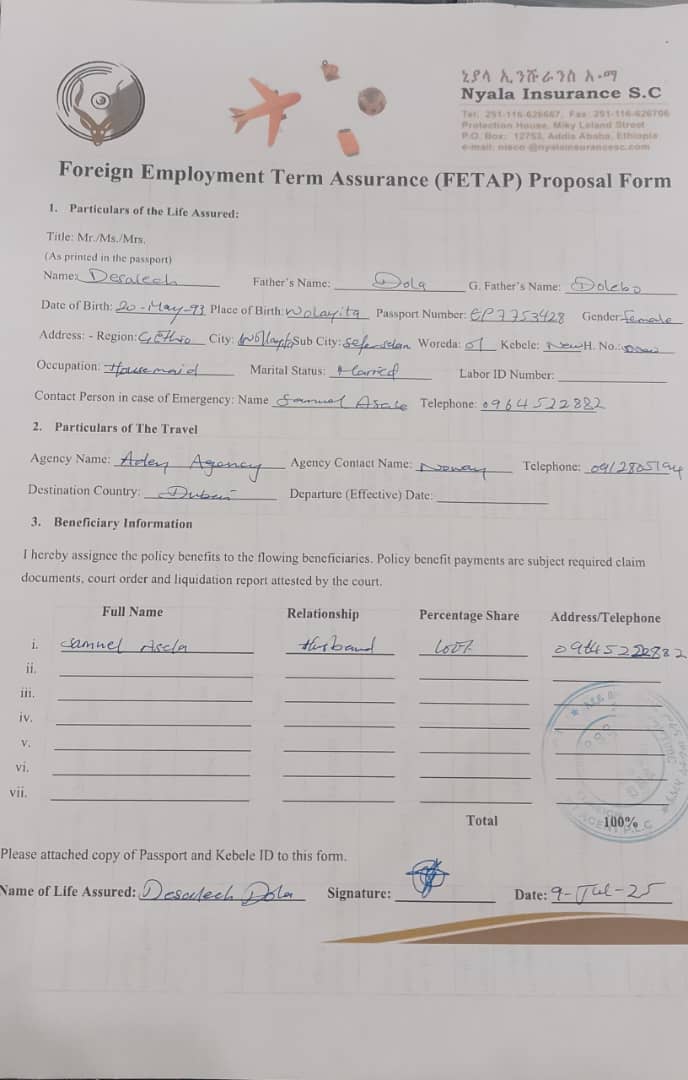 ኒያላ ኢንሹራንስ አ.ማ
Nyala Insurance S.C
Tel: 251-116-626667, Fax: 251-116-626706
Protection House, Miky Leland Street
P.O. Box: 12753, Addis Ababa, Ethiopia
e-mail: nisco @nyalainsurancesc.com
Foreign Employment Term Assurance (FETAP) Proposal Form
1. Particulars of the Life Assured:
Title: Mr./Ms./Mrs.
(As printed in the passport)
Name: Desalech Father's Name: Dola G. Father's Name: Dolebo
Date of Birth: 20-May-93 Place of Birth: Wolayita Passport Number: EP7753428 Gender: female
Address: - Region: City: Sub City: Woreda: 01 Kebele: New H. No.: new
Occupation: Housemaid Marital Status: Married Labor ID Number:
Contact Person in case of Emergency: Name Samuel Asale Telephone: 0964522882
2. Particulars of The Travel
Agency Name: Aden Agency Agency Contact Name: Telephone:
Destination Country: Dubai Departure (Effective) Date:
3. Beneficiary Information
I hereby assignee the policy benefits to the flowing beneficiaries. Policy benefit payments are subject required claim
documents, court order and liquidation report attested by the court.
Full Name Relationship Percentage Share Address/Telephone
i. Samuel Asela Husband 100% 0964522882
ii.
iii.
iv.
v.
vi.
vii.
Total 100%
Please attached copy of Passport and Kebele ID to this form.
Name of Life Assured: Desalech Dola Signature: Date: 9-Jul-25